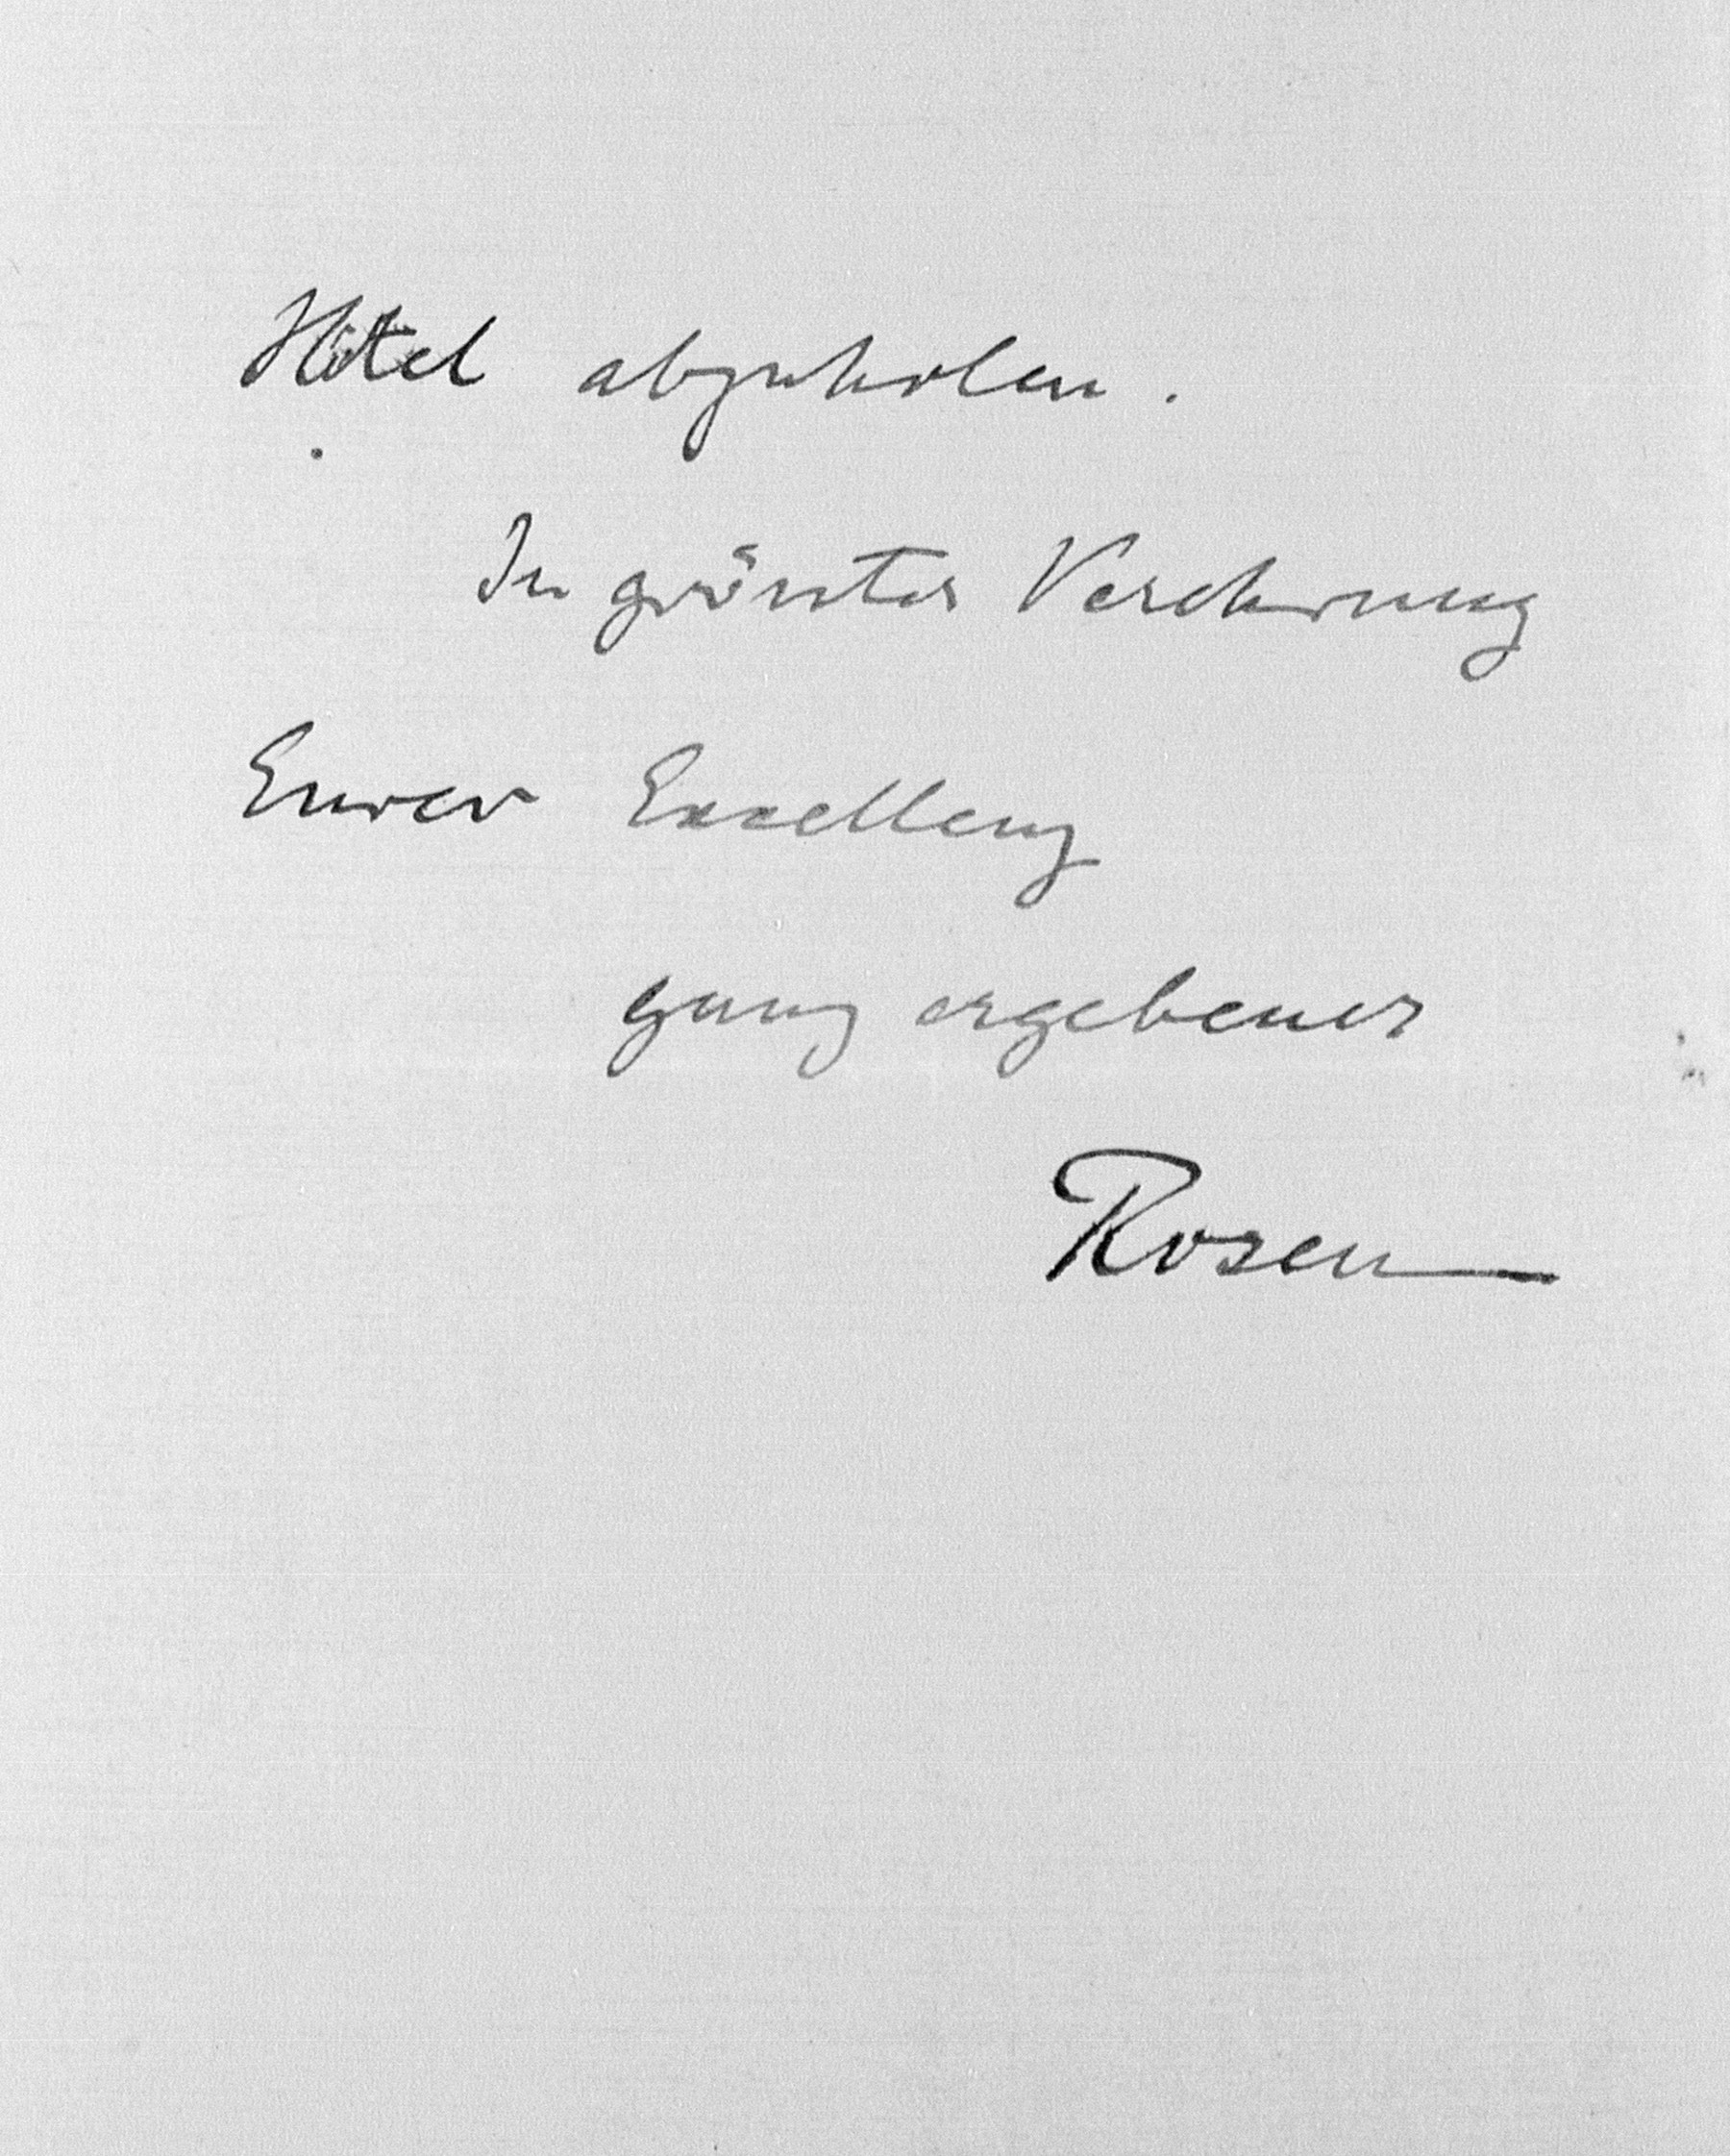 Hôtel abzuholen.
In grösster Verehrung
Eurer Excellenz
ganz ergebener
Rosen